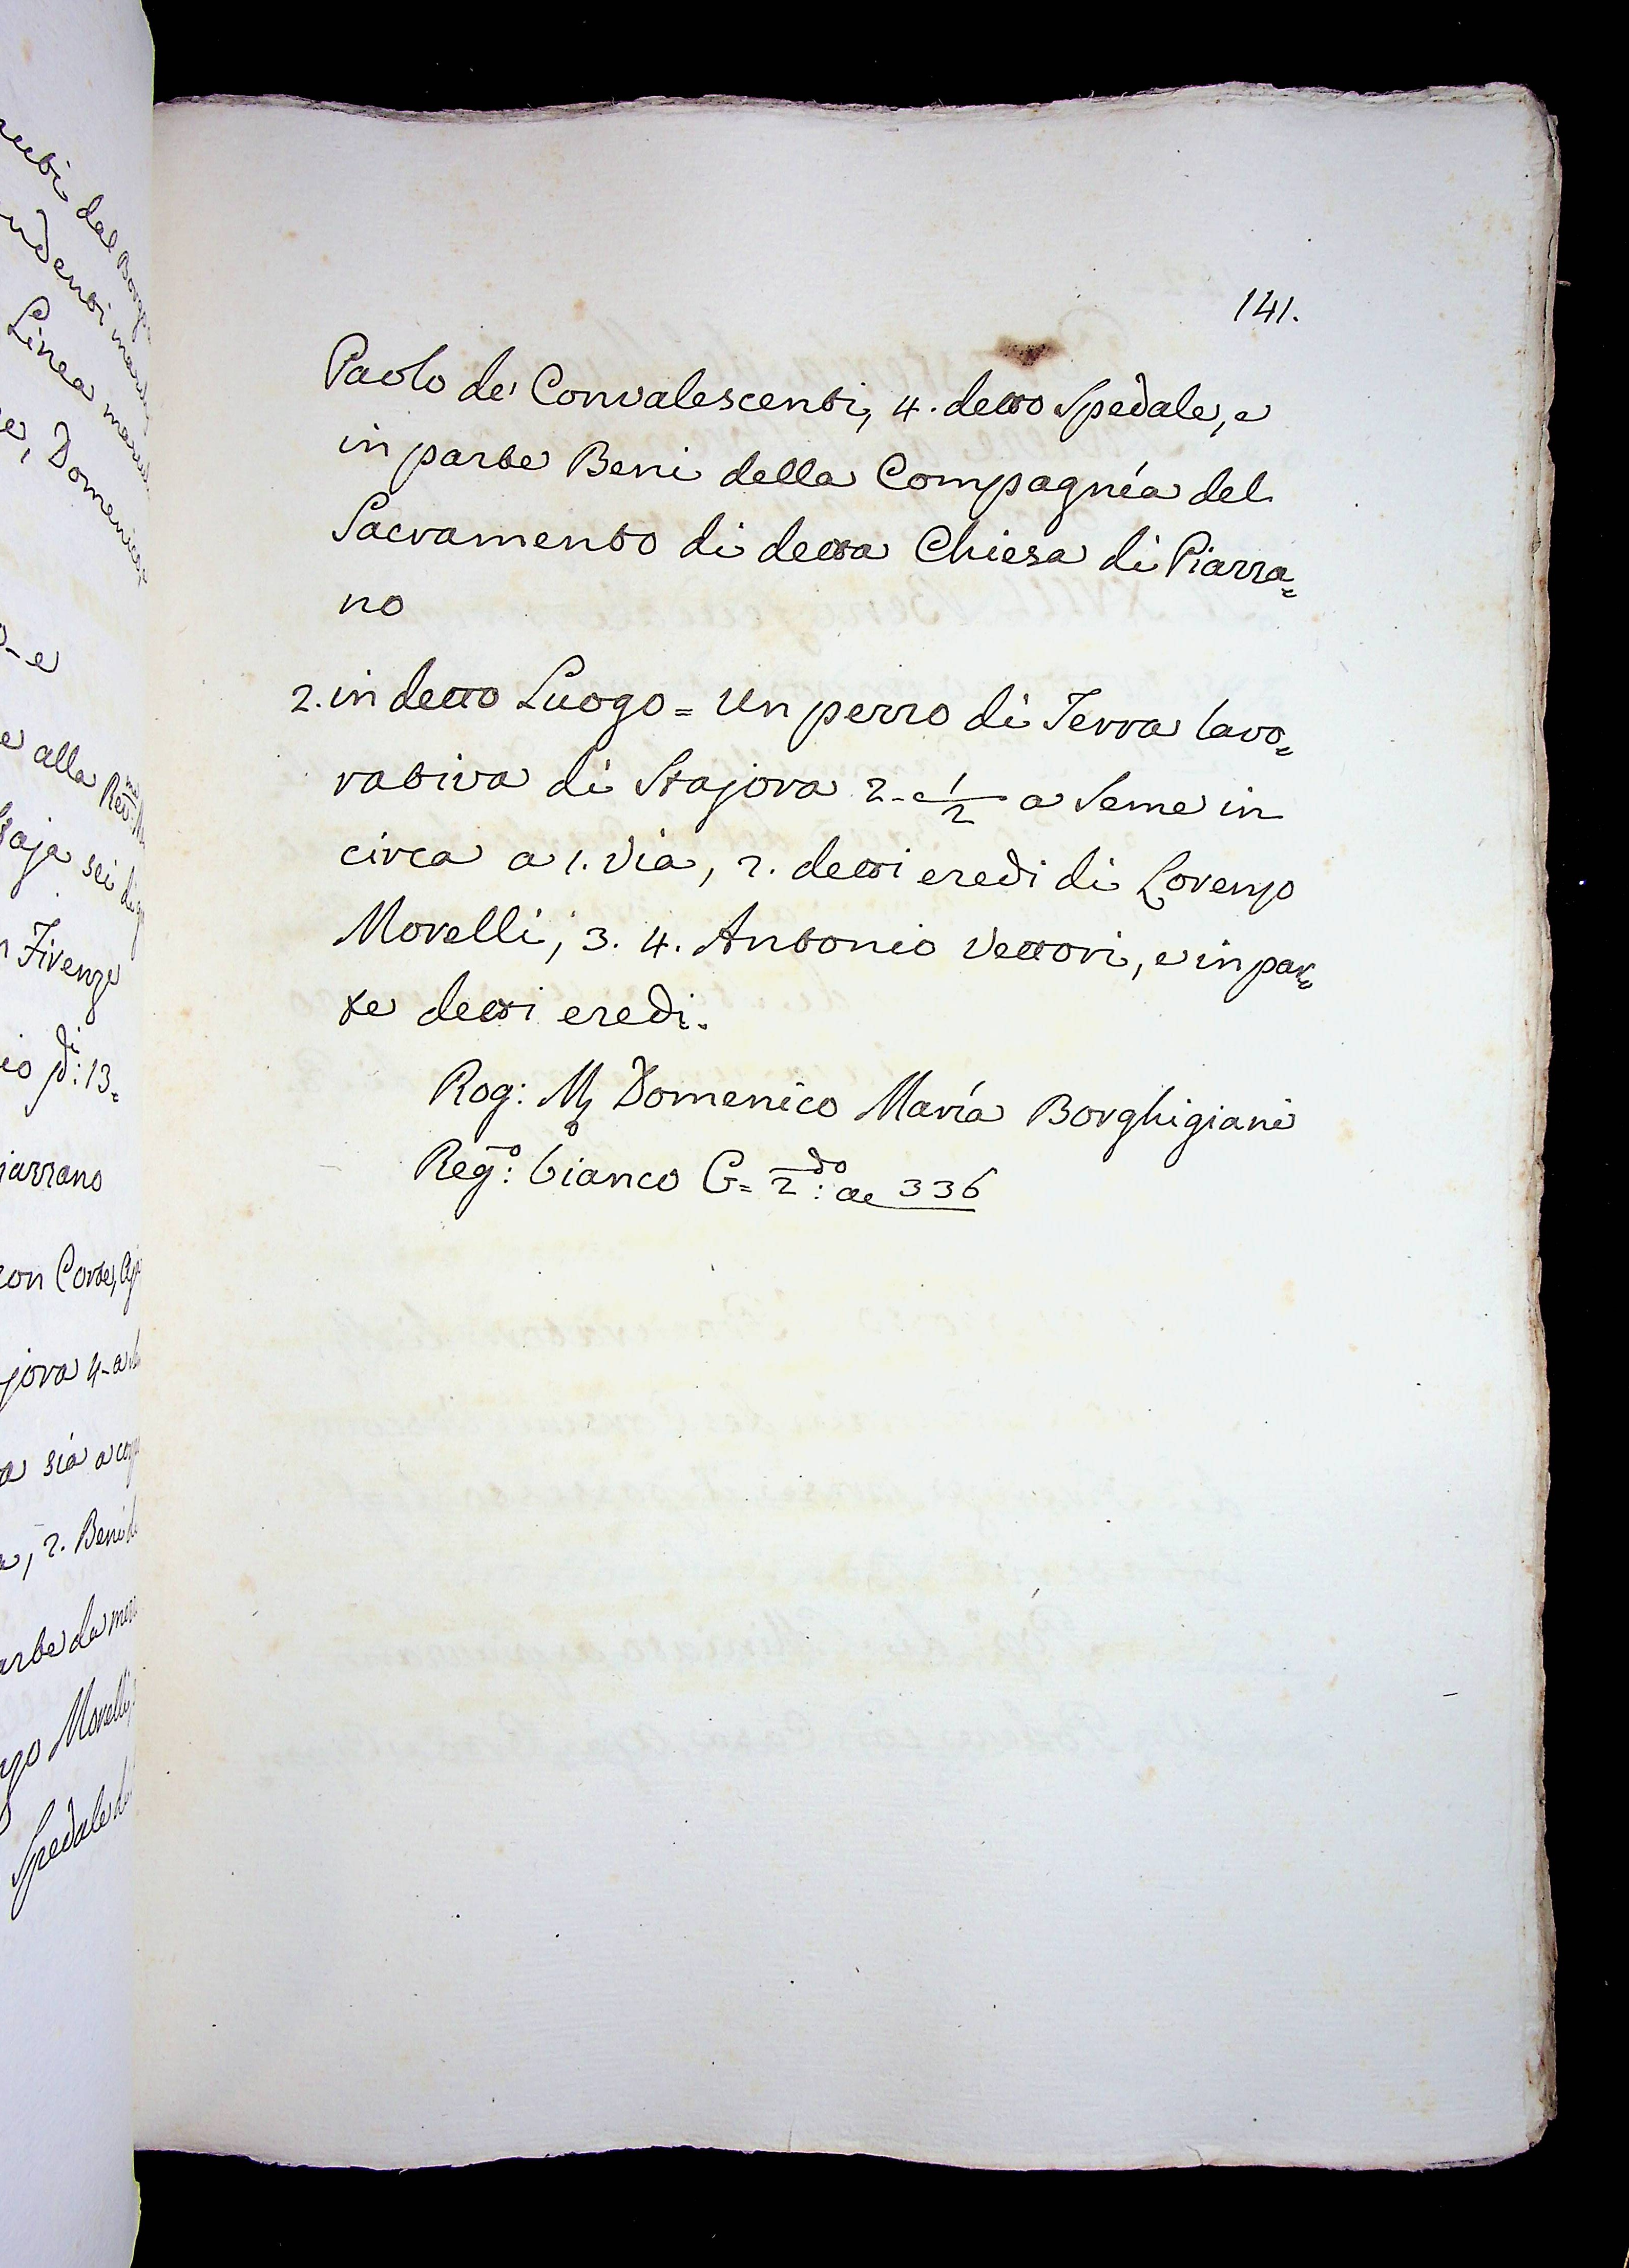 141.
Paolo de' Convalescenti, 4. detto Spedale, e
in parte Beni della Compagnía del
Sacramento di detta Chiesa di Piazza=
no
2. in detto Luogo = Un pezzo di Terra lavo=
rativa di Stajora 2-e 1/2 a Seme in
circa a 1. Via, 2. detti eredi di Lorenzo
Morelli, 3. 4. Antonio Vettori, e in par=
te detti eredi.
Rog: Mr Domenico María Borghigiani
Rego: bianco G= 2do: ae 336
dal
Linea
e, Domenico
o-e
e alla
sei
Firenze
io 13=
iazzano
con Corte,
jora 4-a
a sia a
2. Beni
arte da
zo Morelli
Spedale